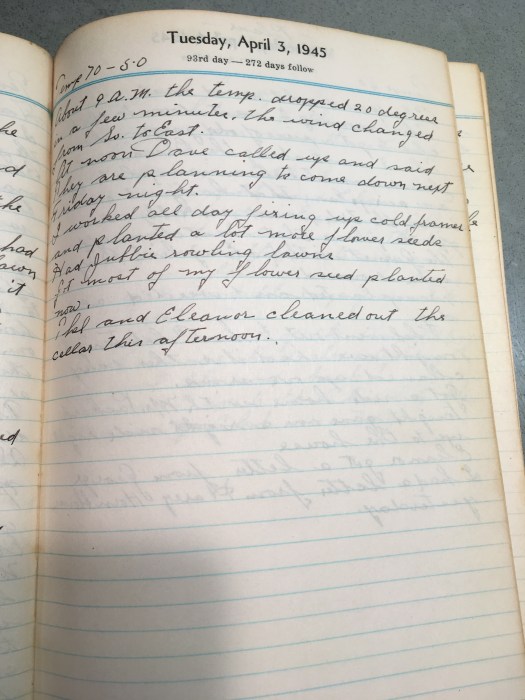 Tuesday, April 3, 1945
93rd day — 272 days follow
Temp 70 - 50
About 9 A.M. the temp. dropped 20 degrees
in a few minutes, the wind changed
from So. to East.
At noon Dave called up and said
they are planning to come down next
Friday night.
I worked all day fixing up cold frames
and planted a lot more flower seeds
Had Jubbie rowling lawns
Got most of my flower seed planted
now.
and Eleanor cleaned out the
cellar this afternoon..
he
d
the
had
lawn
it
ed